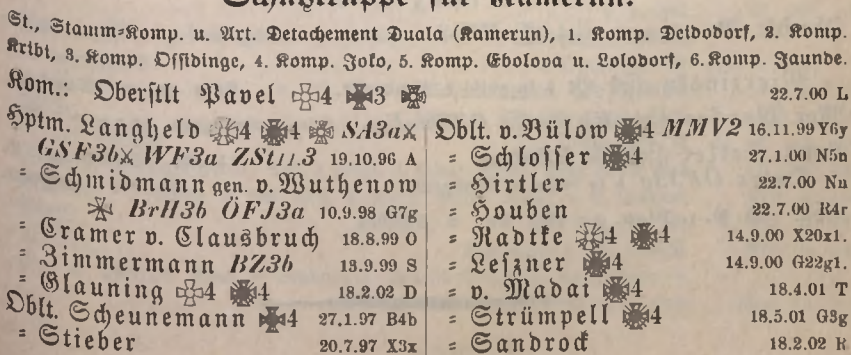 Schutztruppe für Kamerun.
St., Stamm=Komp. u. Art. Detachement Duala (Kamerun), 1. Komp. Deidodorf, 2. Komp.
Kribi, 3. Komp. Ossidinge, 4. Komp. Joko, 5. Komp. Ebolova u. Lolodorf, 6. Komp. Jaunde.
Kom.: Oberstlt Pavel 4 3 22.7.00 L
Hptm. Langheld 4 4 SA3a
GSF3b WF3a ZSt11.3 19.10.96 A
= Schmidmann gen. v. Wuthenow
BrH3b ÖFJ3a 10.9.98 G7g
= Cramer v. Clausbruch 18.8.99 O
= Zimmermann BZ3b 13.9.99 S
= Glauning 4 4 18.2.02 D
Oblt. Scheunemann 4 27.1.97 B4b
= Stieber 20.7.97 X3x
Oblt. v. Bülow 4 MMV2 16.11.99 Y6y
= Schlosser 4 27.1.00 N5n
= Hirtler 22.7.00 Nn
= Houben 22.7.00 R4r
= Radtke 4 4 14.9.00 X20x1.
= Leszner 4 14.9.00 G22g1.
= v. Madai 4 18.4.01 T
= Strümpell 4 18.5.01 G3g
= Sandrock 18.2.02 R